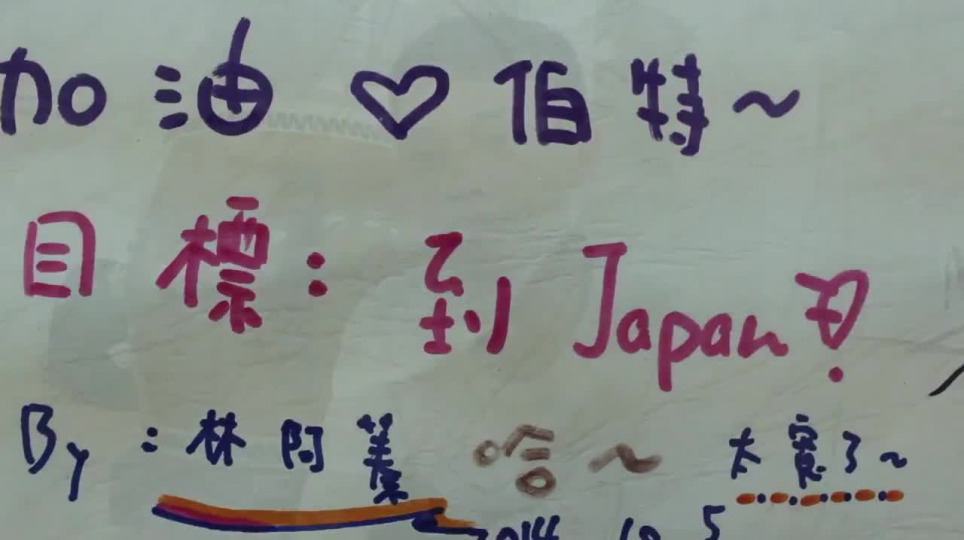 加油♡伯特~
目標:到Japan
By:林阿 哈~ 太寬了~
2014 10 5